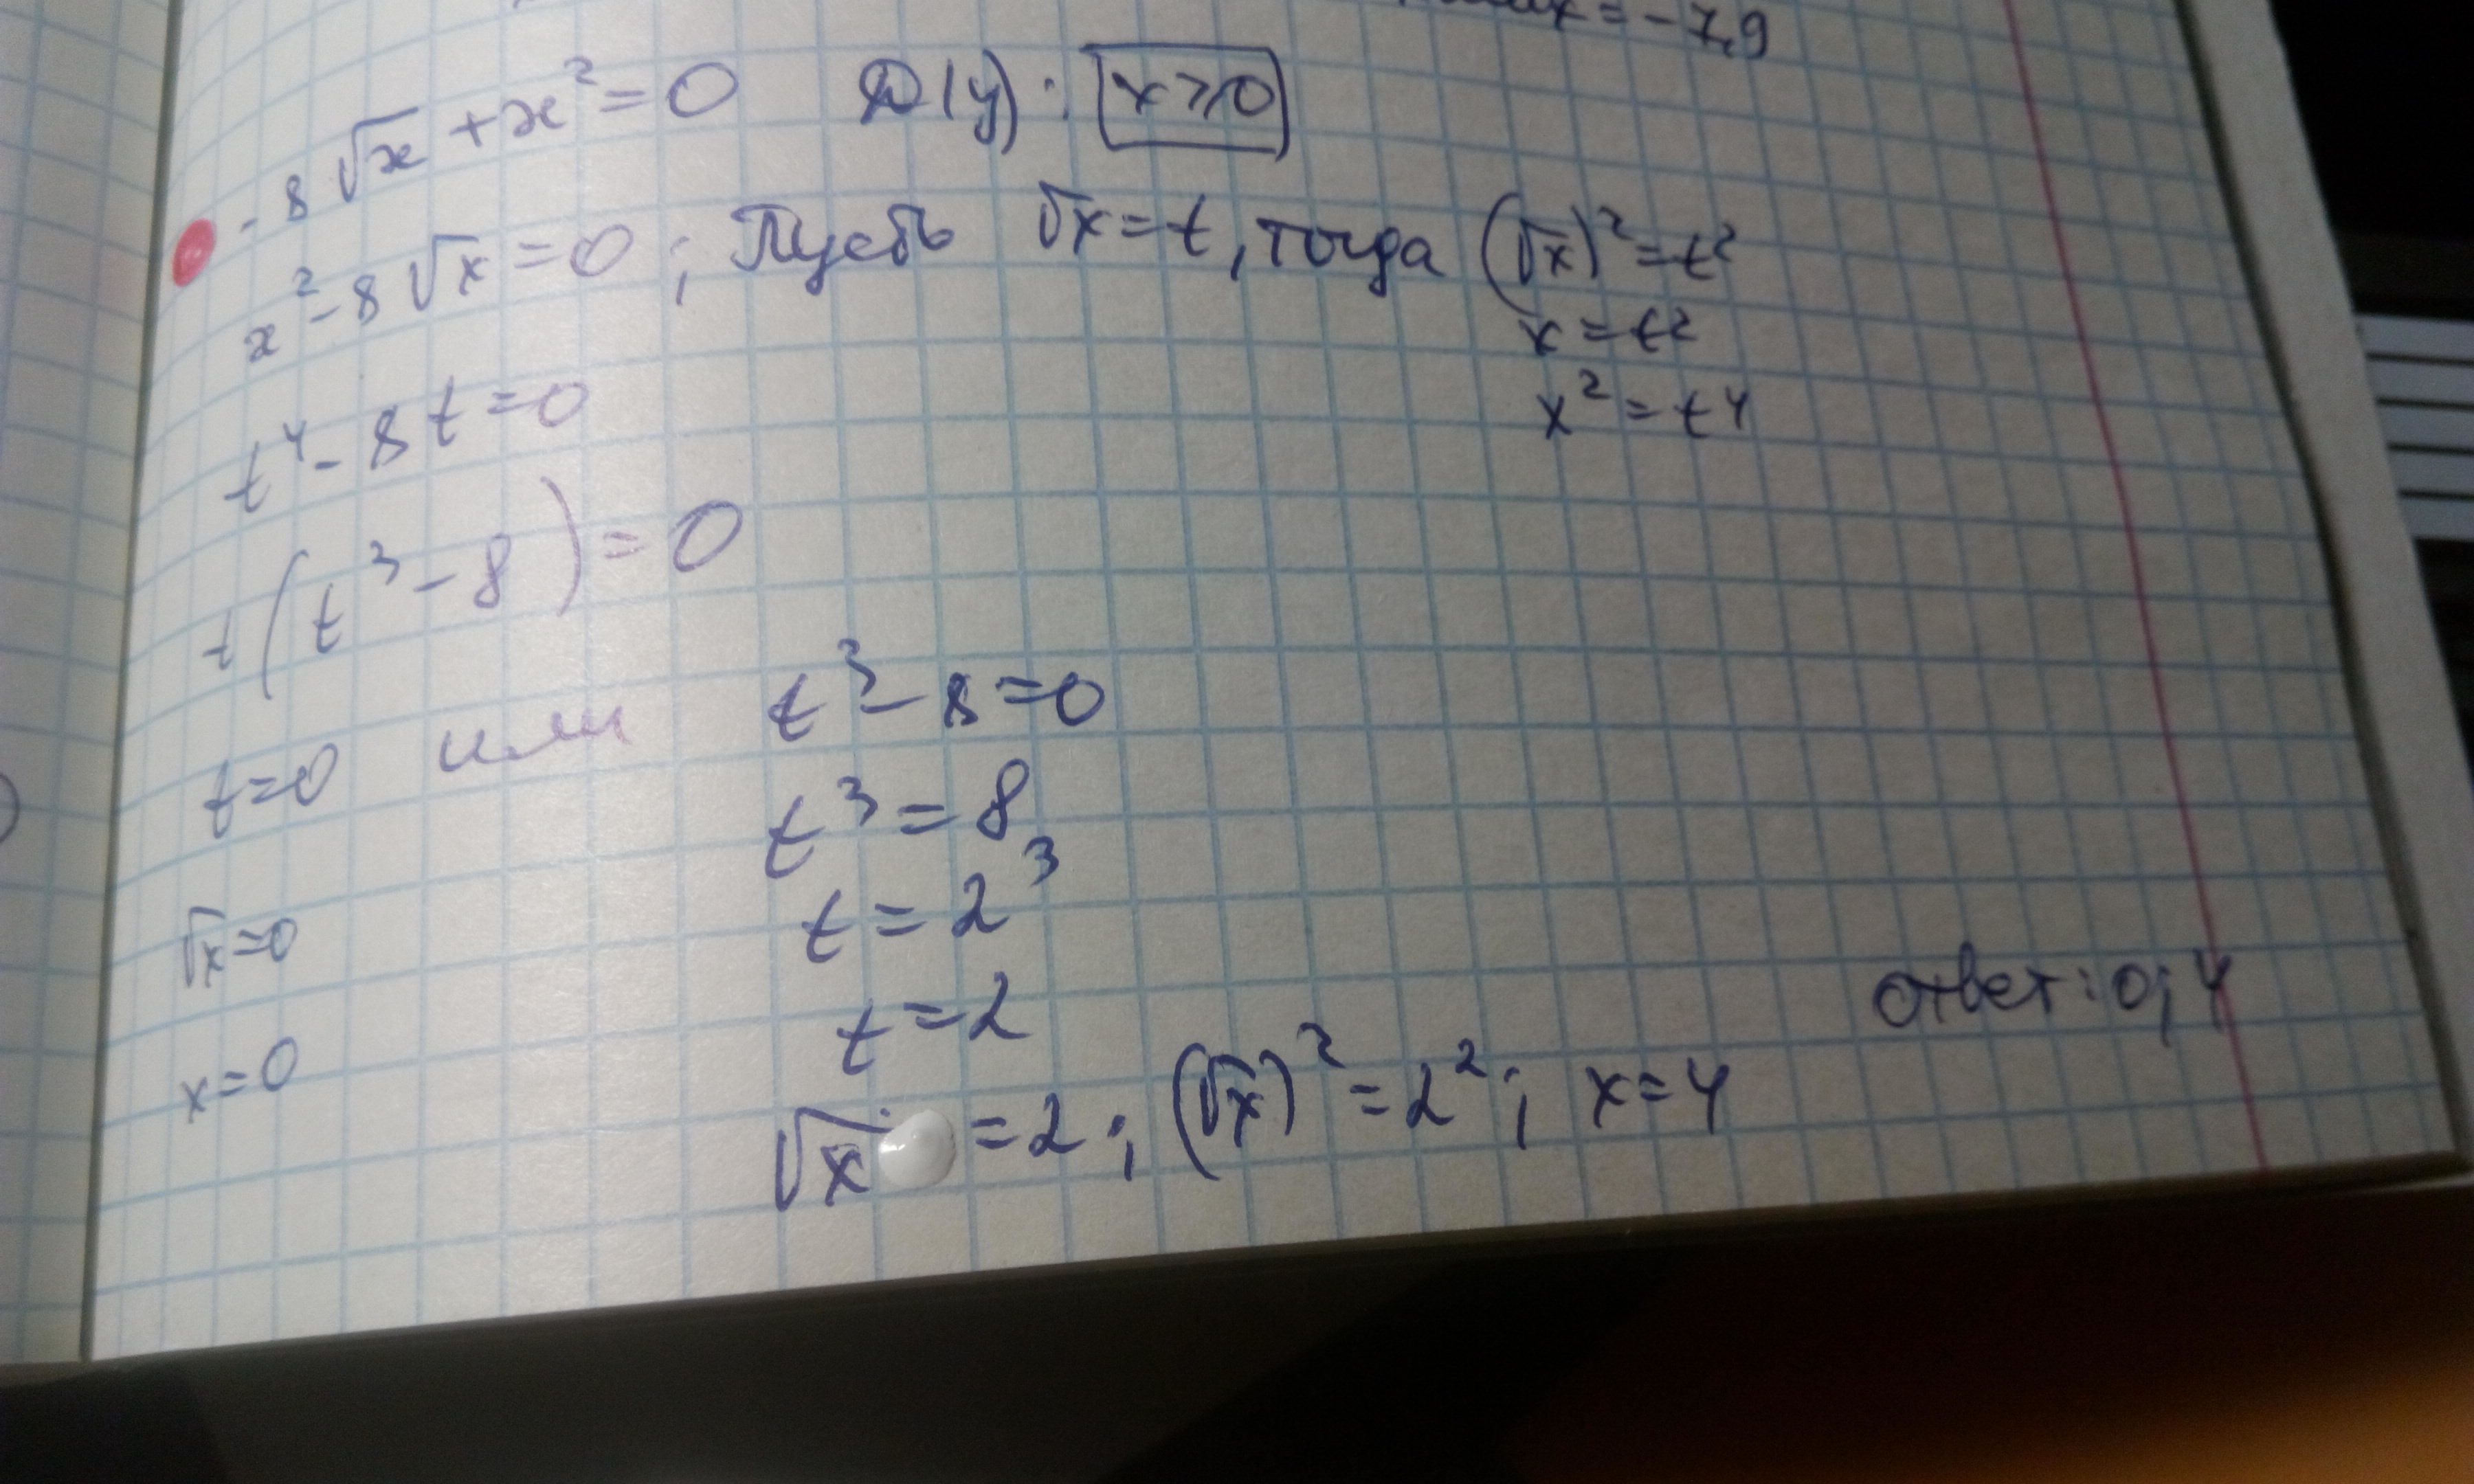 = -7,9
-8√x + x² = 0 Д(y): x ≥ 0
x² - 8√x = 0; Пусть √x = t, тогда (√x)² = t²
x = t²
x² = t⁴
t⁴ - 8t = 0
t(t³ - 8) = 0
t = 0 или t³ - 8 = 0
t³ = 8
t = 2³
t = 2
√x = 0
x = 0
√x = 2; (√x)² = 2²; x = 4
ответ: 0; 4